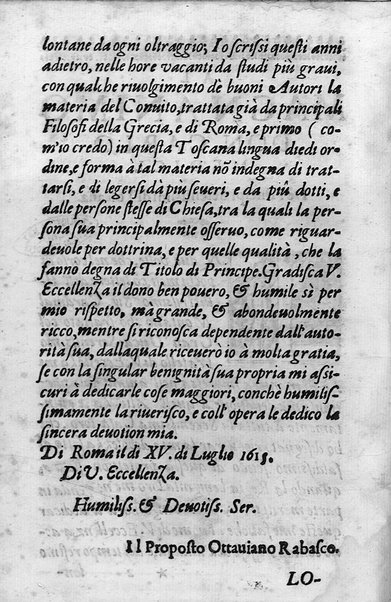 lontane da ogni oltraggio; Io scrissi questi anni
adietro, nelle hore vacanti da studi più graui,
con qualche riuolgimento de buoni Autori la
materia del Conuito, trattata già da principali
Filosofi della Grecia, e di Roma, e primo (co-
m'io credo) in questa Toscana lingua diedi or-
dine, e forma à tal materia nõ indegna di trat-
tarsi, e di legersi da più seueri, e da piú dotti, e
dalle persone stesse di Chiesa, tra la quali la per-
sona sua principalmente osseruo, come riguar-
deuole per dottrina, e per quelle qualità, che la
fanno degna di Titolo di Principe. Gradisca V.
Eccellenza il dono ben pouero, & humile sì per
mio rispetto, mà grande, & abondeuolmente
ricco, mentre si riconosca dependente dall'auto-
rità sua, dallaquale riceuerò io à molta gratia,
se con la singular benignità sua propria mi assi-
curi à dedicarle cose maggiori, conchè humilis-
simamente la riuerisco, e coll' opera le dedico la
sincera deuotion mia.
Di Roma il di XV. di Luglio 1615.
Di V. Eccellenza.
Humiliss. & Deuotiss. Ser.
Il Proposto Ottauiano Rabasco.
LO-